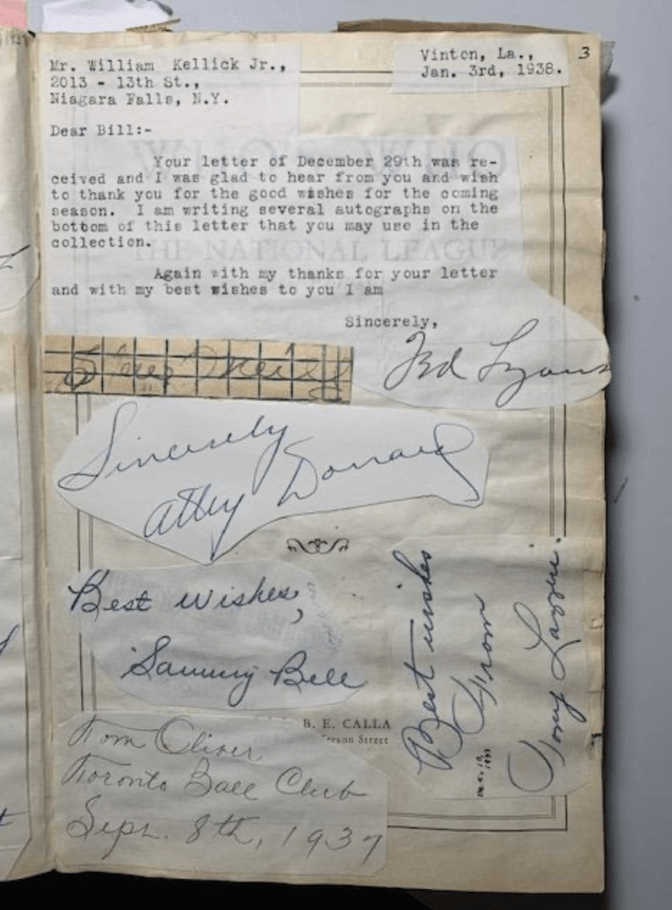 3
Mr. William Kellick Jr.,
2013 - 13th St.,
Niagara Falls, N.Y.
Vinton, La.,
Jan. 3rd, 1938.
Dear Bill:-
Your letter of December 29th was re-
ceived and I was glad to hear from you and wish
to thank you for the good wishes for the coming
season. I am writing several autographs on the
bottom of this letter that you may use in the
collection.
Again with my thanks for your letter
and with my best wishes to you I am
Sincerely,
WHO'S WHO
THE NATIONAL LEAGUE
Ted Lyons
Sincerely
Atley Donald
Best wishes,
Sammy Bell
Best wishes
From
Tony Lazzeri.
B. E. CALLA
Street
Tom Oliver
Toronto Ball Club
Sept. 8th, 1937